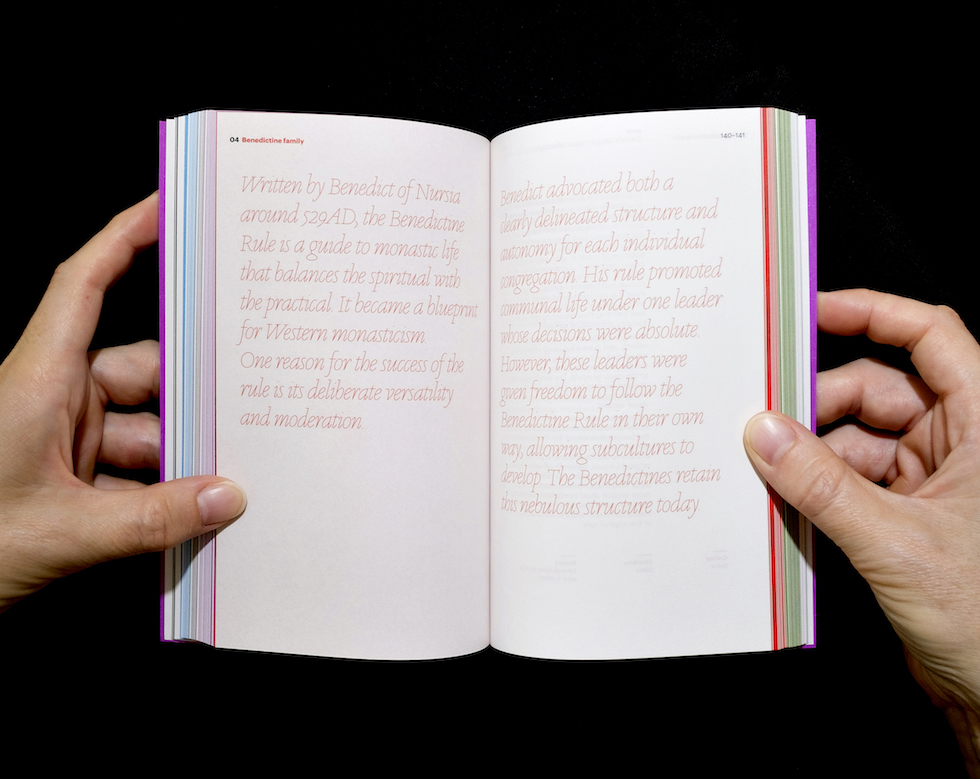 04 Benedictine family
Written by Benedict of Nursia
around 529AD, the Benedictine
Rule is a guide to monastic life
that balances the spiritual with
the practical. It became a blueprint
for Western monasticism.
One reason for the success of the
rule is its deliberate versatility
and moderation.
140–141
Benedict advocated both a
clearly delineated structure and
autonomy for each individual
congregation. His rule promoted
communal life under one leader
whose decisions were absolute.
However, these leaders were
given freedom to follow the
Benedictine Rule in their own
way, allowing subcultures to
develop. The Benedictines retain
this nebulous structure today.